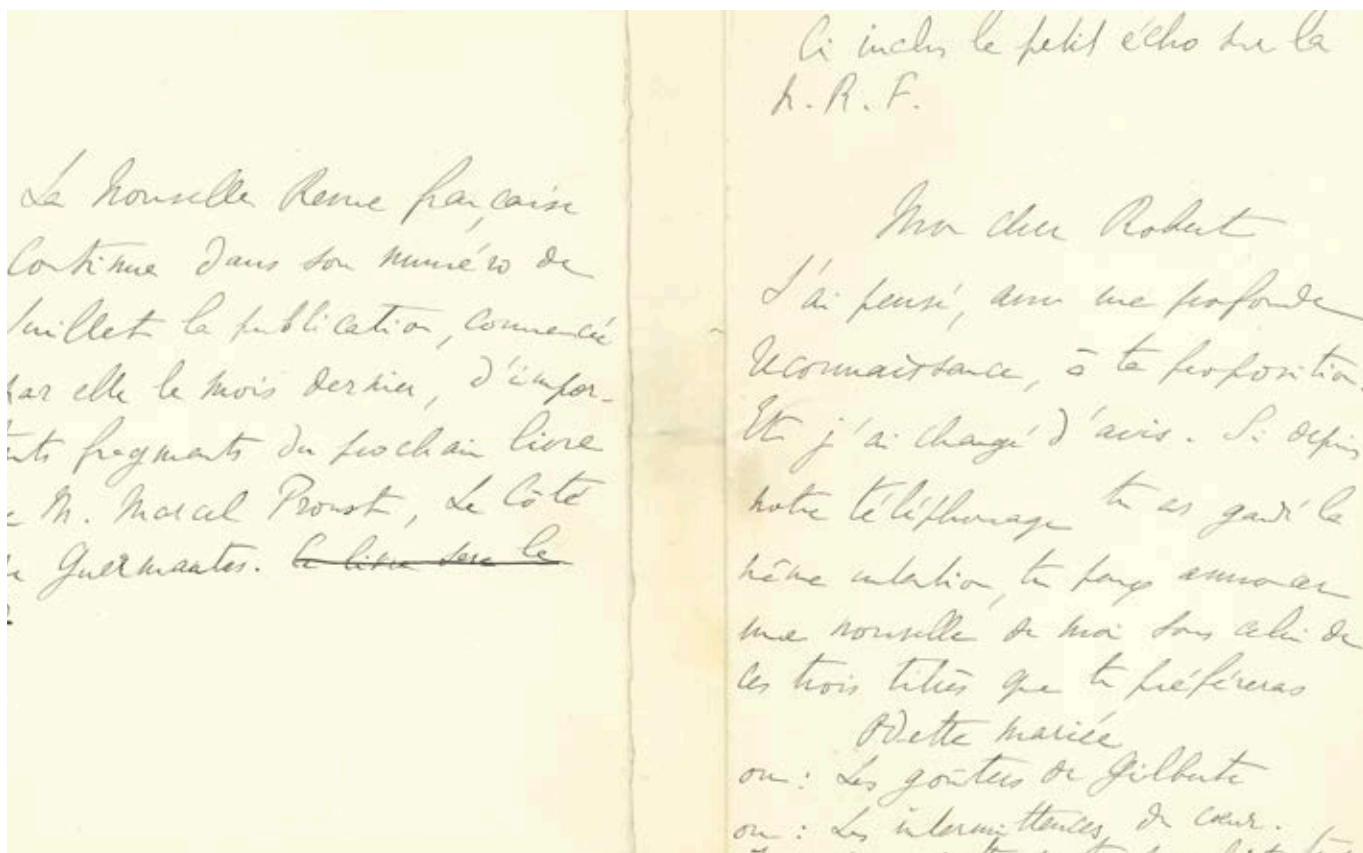 La Nouvelle Revue française
Continue dans son numéro de
Juillet la publication, commencée
par elle le mois dernier, d'impor-
nts fragments du prochain livre
M. Marcel Proust, Le Côté
Guermantes. Ce livre sera le
Ci inclus le petit écho sur la
N. R. F.
Mon cher Robert
J'ai pensé, avec une profonde
reconnaissance, à ta proposition.
Et j'ai changé d'avis. Si depuis
notre téléphonage tu as gardé la
même intention, tu peux annoncer
une nouvelle de moi sous celui de
ces trois titres que tu préféreras
Odette mariée
ou : Les goûters de Gilberte
ou : Les intermittences du cœur.